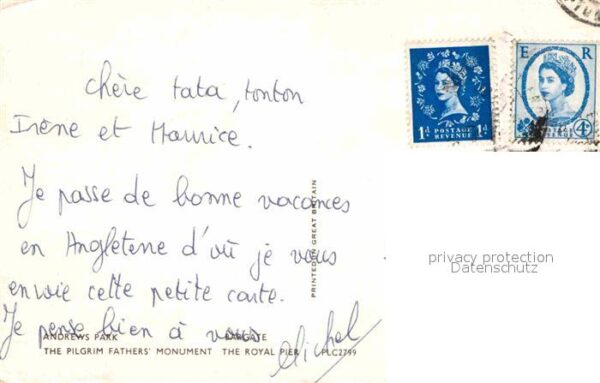 chère tata, tonton
Irène et Maurice.
Je passe de bonne vacances
en Angleterre d'où je vous
envoie cette petite carte.
Je pense bien à vous
Michel
ANDREWS PARK BARGATE
THE PILGRIM FATHERS' MONUMENT THE ROYAL PIER PLC2799
PRINTED IN GREAT BRITAIN
1d POSTAGE 1d
REVENUE
E R
POSTAGE
REVENUE 4d
privacy protection
Datenschutz